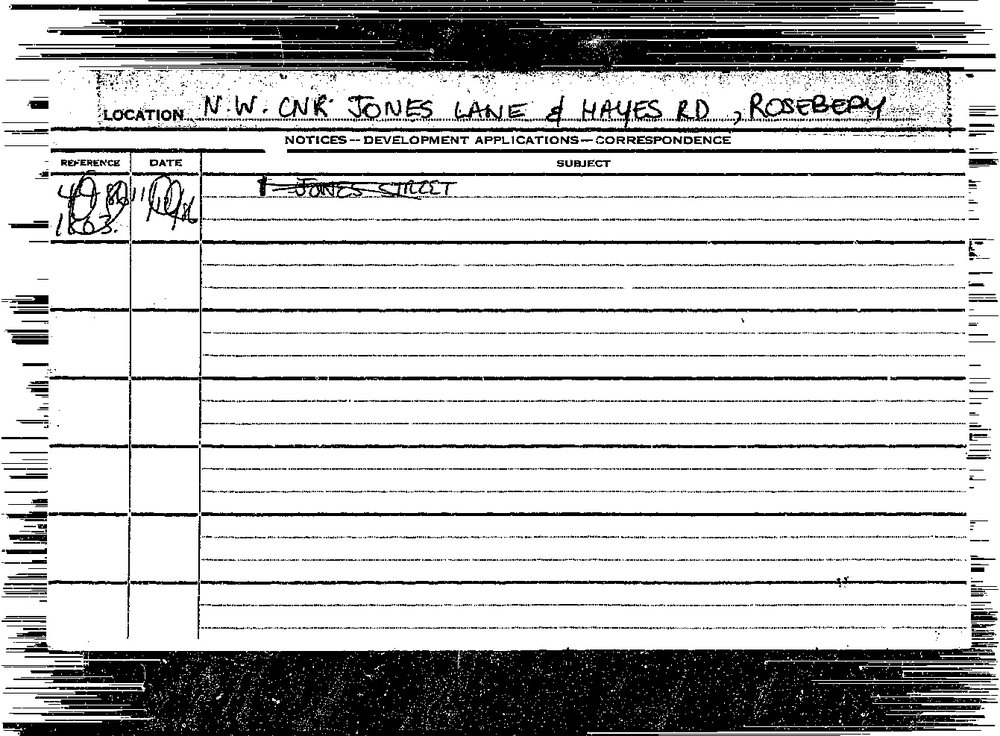 LOCATION N.W. CNR JONES LANE & HAYES RD, ROSEBERY
NOTICES—DEVELOPMENT APPLICATIONS—CORRESPONDENCE
REFERENCE DATE SUBJECT
JONES STREET